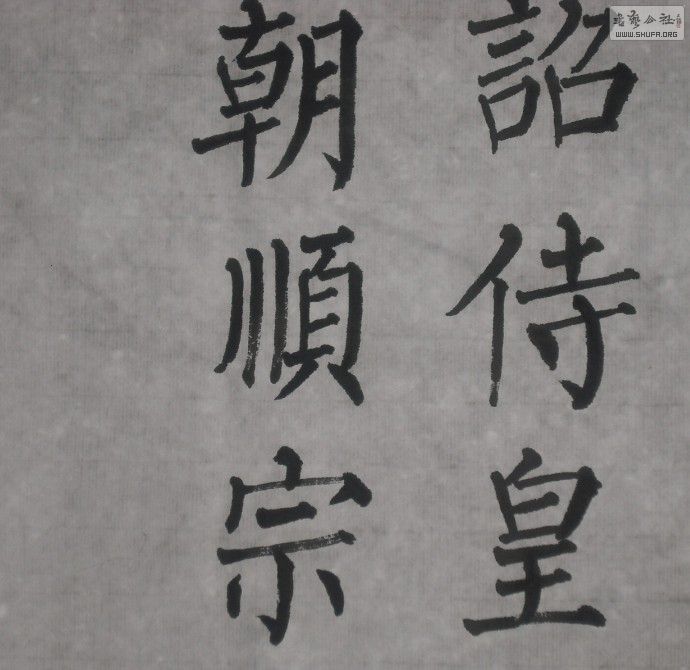 詔侍皇
朝順宗
WWW.SHUFA.ORG